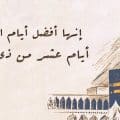 إنها أفضل أيام ا
أيام عشر من ذي